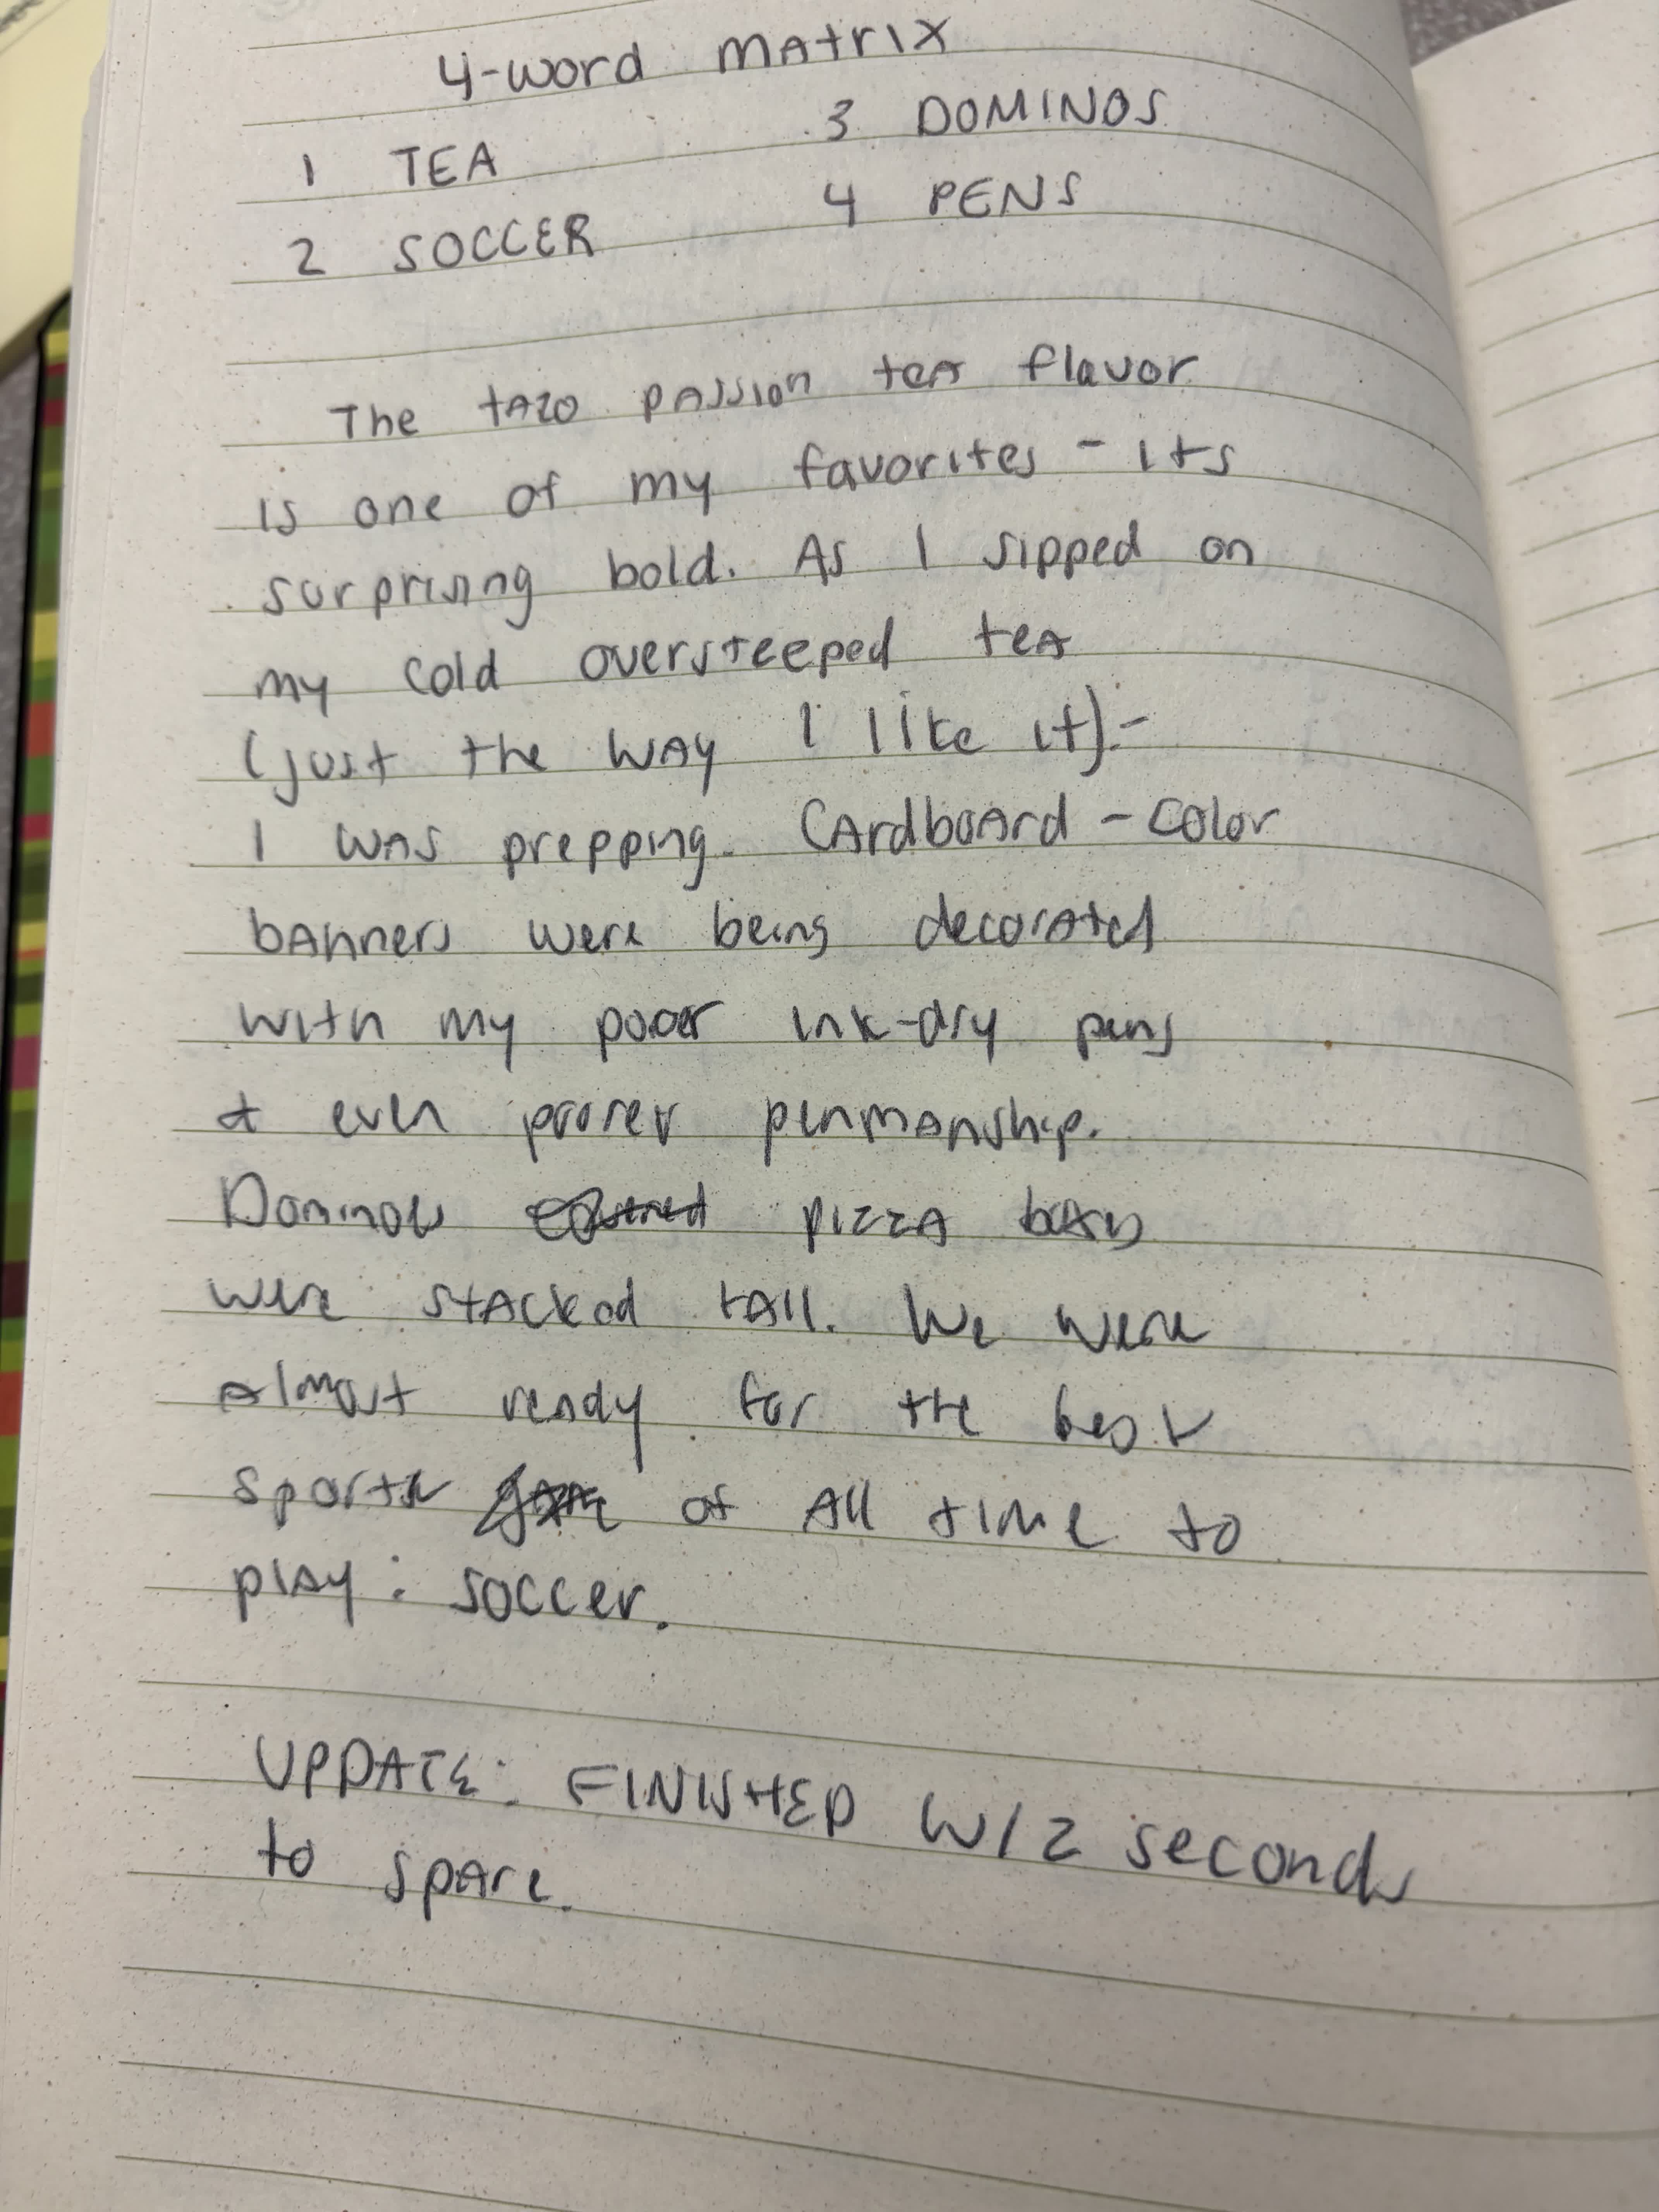 4-word matrix
1 TEA 3 DOMINOS
2 SOCCER 4 PENS
The tazo passion tea flavor
is one of my favorites - its
surprising bold. As I sipped on
my cold oversteeped tea
(just the way I like it).-
I was prepping. Cardboard-color
banners were being decorated
with my pooer ink-dry pens
& even poorer penmanship.
Dominos pizza boxes
were stacked tall. We were
almost ready for the best
sports of all time to
play: soccer.
UPDATE: FINISHED W/2 seconds
to spare.